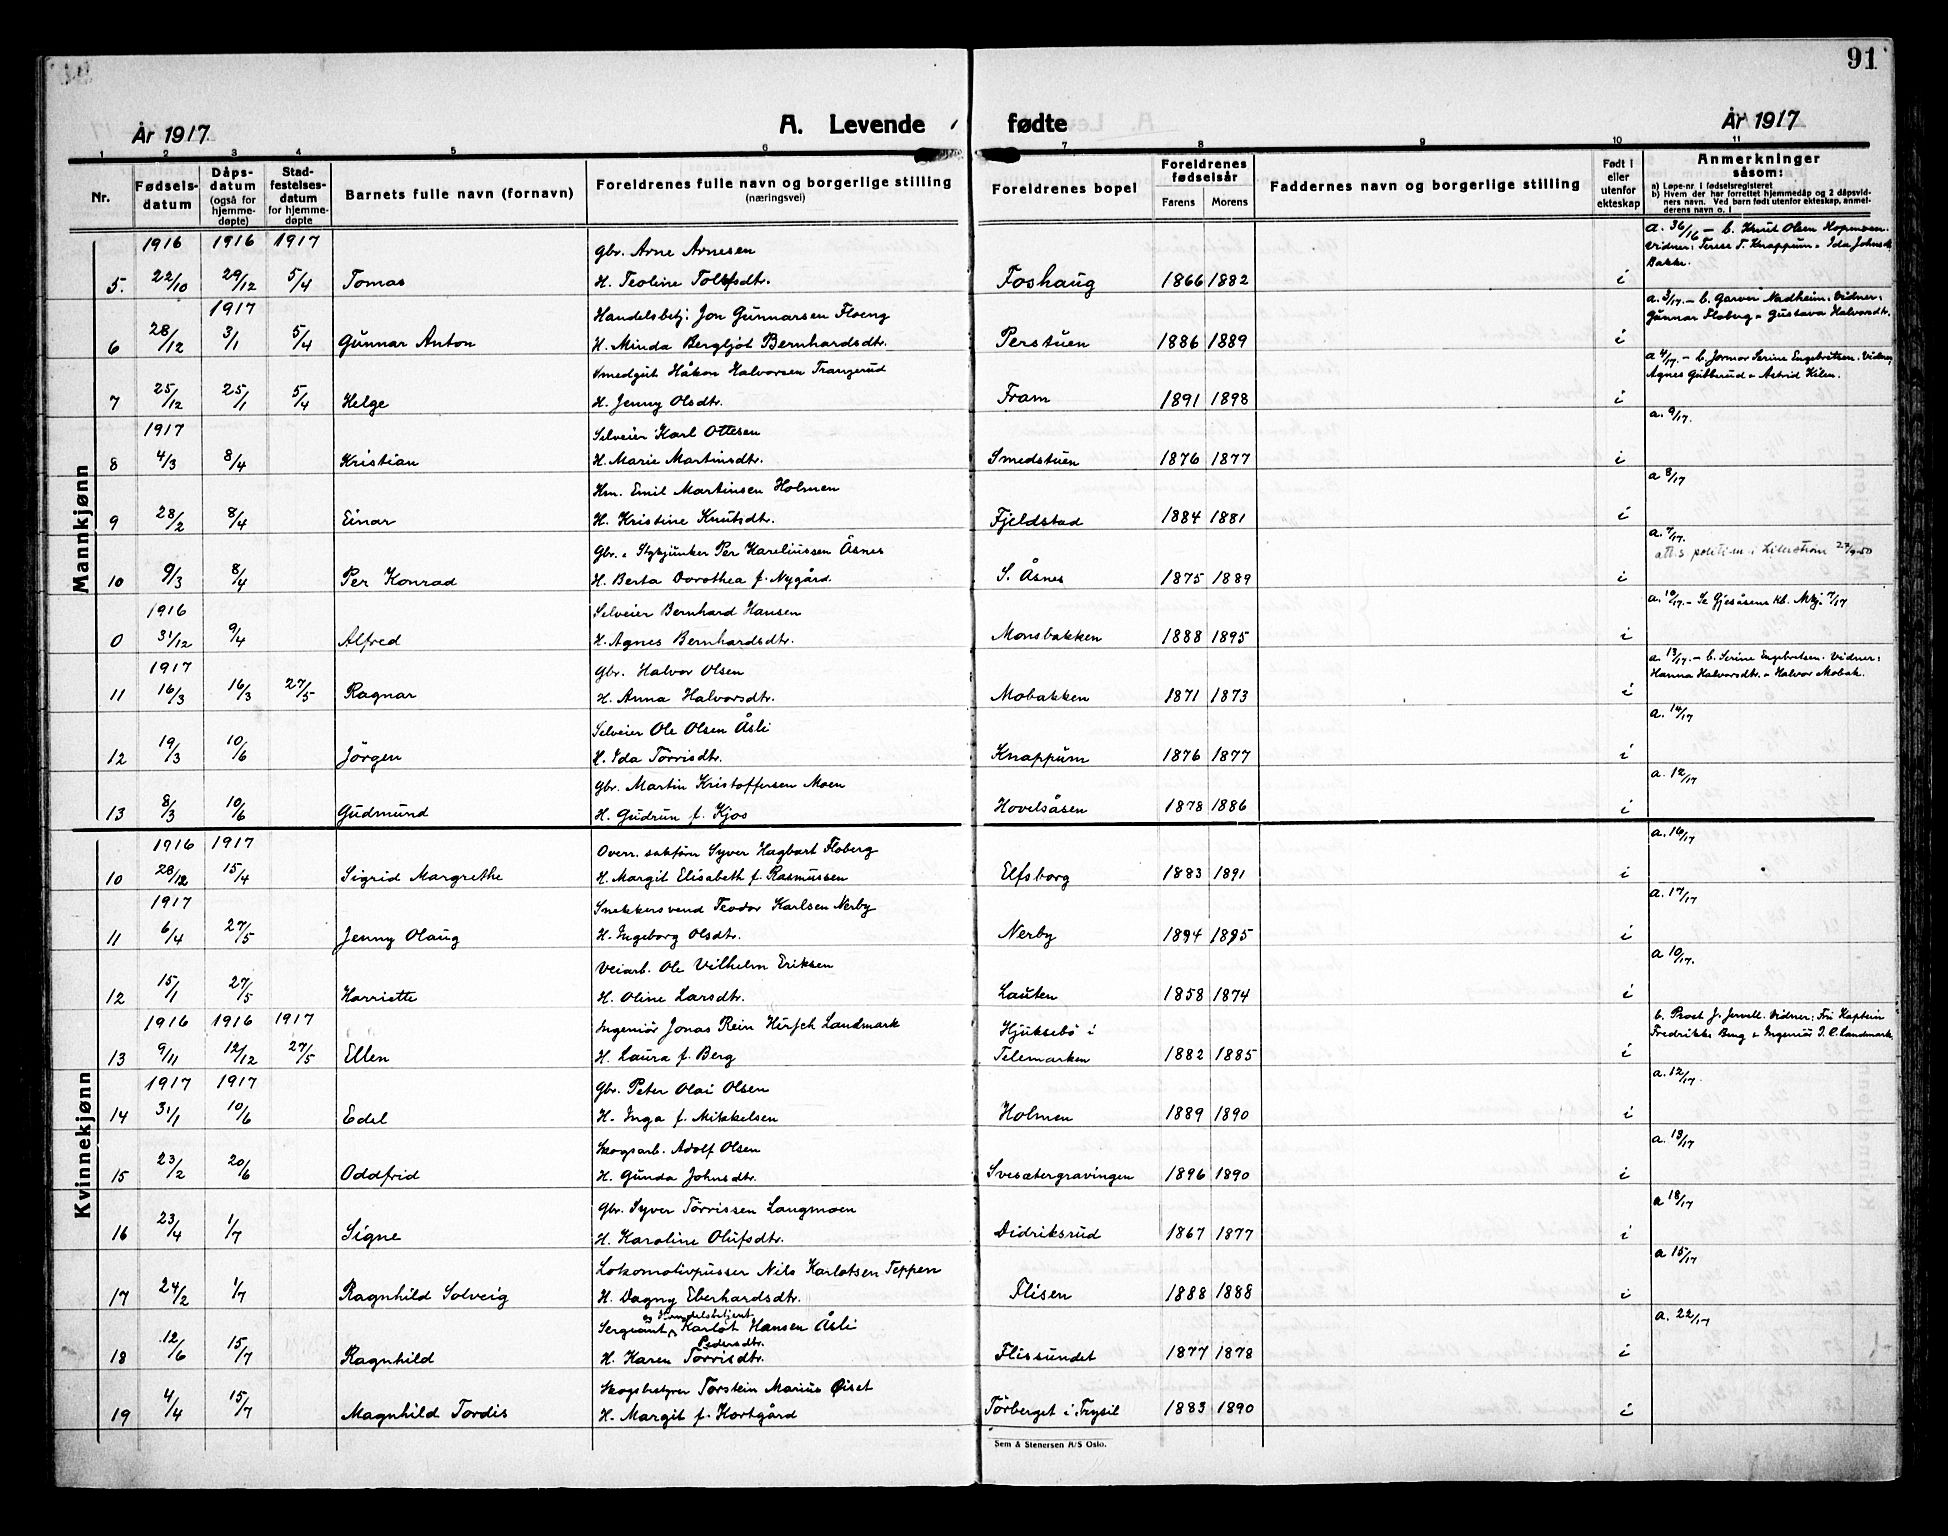 91
År 1917 A. Levende fødte År 1917
1 2 3 4 5 6 7 8 9 10 11
Nr. Fødselsdatum Dåpsdatum (også for hjemmedøpte) Stadfestelsesdatum for hjemmedøpte Barnets fulle navn (fornavn) Foreldrenes fulle navn og borgerlige stilling (næringsvei) Foreldrenes bopel Foreldrenes fødselsår Farens Morens Faddernes navn og borgerlige stilling Født i eller utenfor ekteskap Anmerkninger såsom:
a) Løpe-nr. i fødselsregisteret
b) Hvem der har forrettet hjemmedåp og 2 dåpsvidners navn. Ved barn født utenfor ekteskap, anmelderens navn o. l
Mannkjønn
1916 1916 1917 Gbr. Arne Arnesen a. 36/16 – b. Knut Olsen Hopmoen. Vidner: Terese T. Knappum & Ida Johnsd. Bakke.
5. 22/10 29/12 5/4 Tomas H. Teoline Tollefsdtr. Foshaug 1866 1882 i
1917 Handelsbetj. Jon Gunnarsen Floeng a. 3/17. – b. Garver Nadheim. Vidner: Gunnar Floberg & Gustava Halvorsdtr.
6 28/12 3/1 5/4 Gunnar Anton H. Minda Bergljot Bernhardsdtr. Perstuen 1886 1889 i
Smedgut Håkon Halvorsen Trangerud a 4/17. – b. Jormor Serine Engebretsen. Vidner, Agnes Gubberud & Astrid Kilen.
7 25/12 25/1 5/4 Helge H. Jenny Olsdtr. Fram 1891 1898 i
1917 Selveier Karl Ottesen a. 9/17.
8 4/3 8/4 Kristian H. Marie Martinsdtr. Smedstuen 1876 1877 i
Km. Emil Martinsen Holmen a 8/17
9 28/2 8/4 Einar H. Kristine Knutsdtr. Fjeldstad 1884 1881 i
Gbr. & Stykjunker Per Kareliussen Åsnes a. 7/17. att. s politiet i Lillestrøm 27/9-50
10 9/3 8/4 Per Konrad H. Berta Dorothea f. Nygård. S. Åsnes 1875 1889 i
1916 Selveier Bernhard Hansen a. 10/17. – Se Gjesåsens kb. Mkj. 7/17
0 31/12 9/4 Alfred H. Agnes Bernhardsdtr. Monsbakken 1888 1895 i
1917 Gbr. Halvor Olsen a. 13/17. – b. Serine Engebretsen. Vidner: Hanna Halvorsdtr. & Halvor Mobak.
11 16/3 16/3 27/5 Ragnar H. Anna Halvorsdtr. Mobakken 1871 1873 i
Selveier Ole Olsen Åsli a. 14/17
12 19/3 10/6 Jörgen H. Ida Törrisdtr. Knappum 1876 1877 i
Gbr. Martin Kristoffersen Moen a. 12/17
13 8/3 10/6 Gudmund H. Gudrun f. Kjos Hovelsåsen 1878 1886 i
Kvinnekjønn
1916 1917 Overr. sakfører Syver Hagbart Floberg a. 16/17
10 28/12 15/4 Sigrid Margrethe H. Margit Elisabeth f. Rasmussen Elfsborg 1883 1891 i
1917 Snekkersvend Teodor Karlsen Nerby a. 17/17
11 6/4 27/5 Jenny Olaug H. Ingeborg Olsdtr. Nerby 1894 1895 i
Veiarb. Ole Vilhelm Eriksen a 10/17.
12 15/1 27/5 Harriette H. Oline Larsdtr. Lauten 1858 1874 i
1916 1916 1917 Ingeniör Jonas Rein Hirsch Landmark Hjuksebö i b. Prost J. Jervell. Vidner: Fru Kaptein Fredrikke Berg & Ingeniör J. C. Landmark.
13 9/11 12/12 27/5 Ellen H. Laura f. Berg Telemarken 1882 1885 i
1917 1917 Gbr. Peter Olai Olsen a. 12/17.
14 31/1 10/6 Edel H. Inga f. Mikkelsen Holmen 1889 1890 i
Skogsarb. Adolf Olsen a. 13/17
15 23/2 20/6 Oddfrid H. Gunda Johnsdtr. Svesætergravingen 1896 1890 i
Gbr. Syver Törrissen Langmoen a 18/17
16 23/4 1/7 Signe H. Karoline Olufsdtr. Didriksrud 1867 1877 i
Lokomotivpusser Nils Karlotsen Teppen a 15/17
17 24/2 1/7 Ragnhild Solveig H. Dagny Eberhardsdtr. Flisen 1888 1888 i
og Handelsbetjent
Sergeant Karlot Hansen Åsli a. 22/17
Pedersdtr.
18 12/6 15/7 Ragnhild H. Karen Törrisdtr. Flissundet 1877 1878 i
Skogsbetyrer Torstein Marius Øiset
19 4/4 15/7 Magnhild Tordis H. Margit f. Kortgård Törberget i Trysil 1883 1890 i
Sem & Stenersen A/S Oslo.